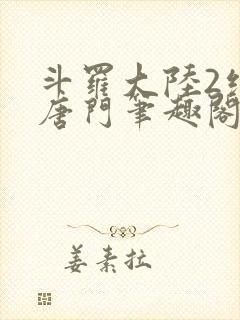 斗羅大陸2
唐門筆趣閣
姜素拉